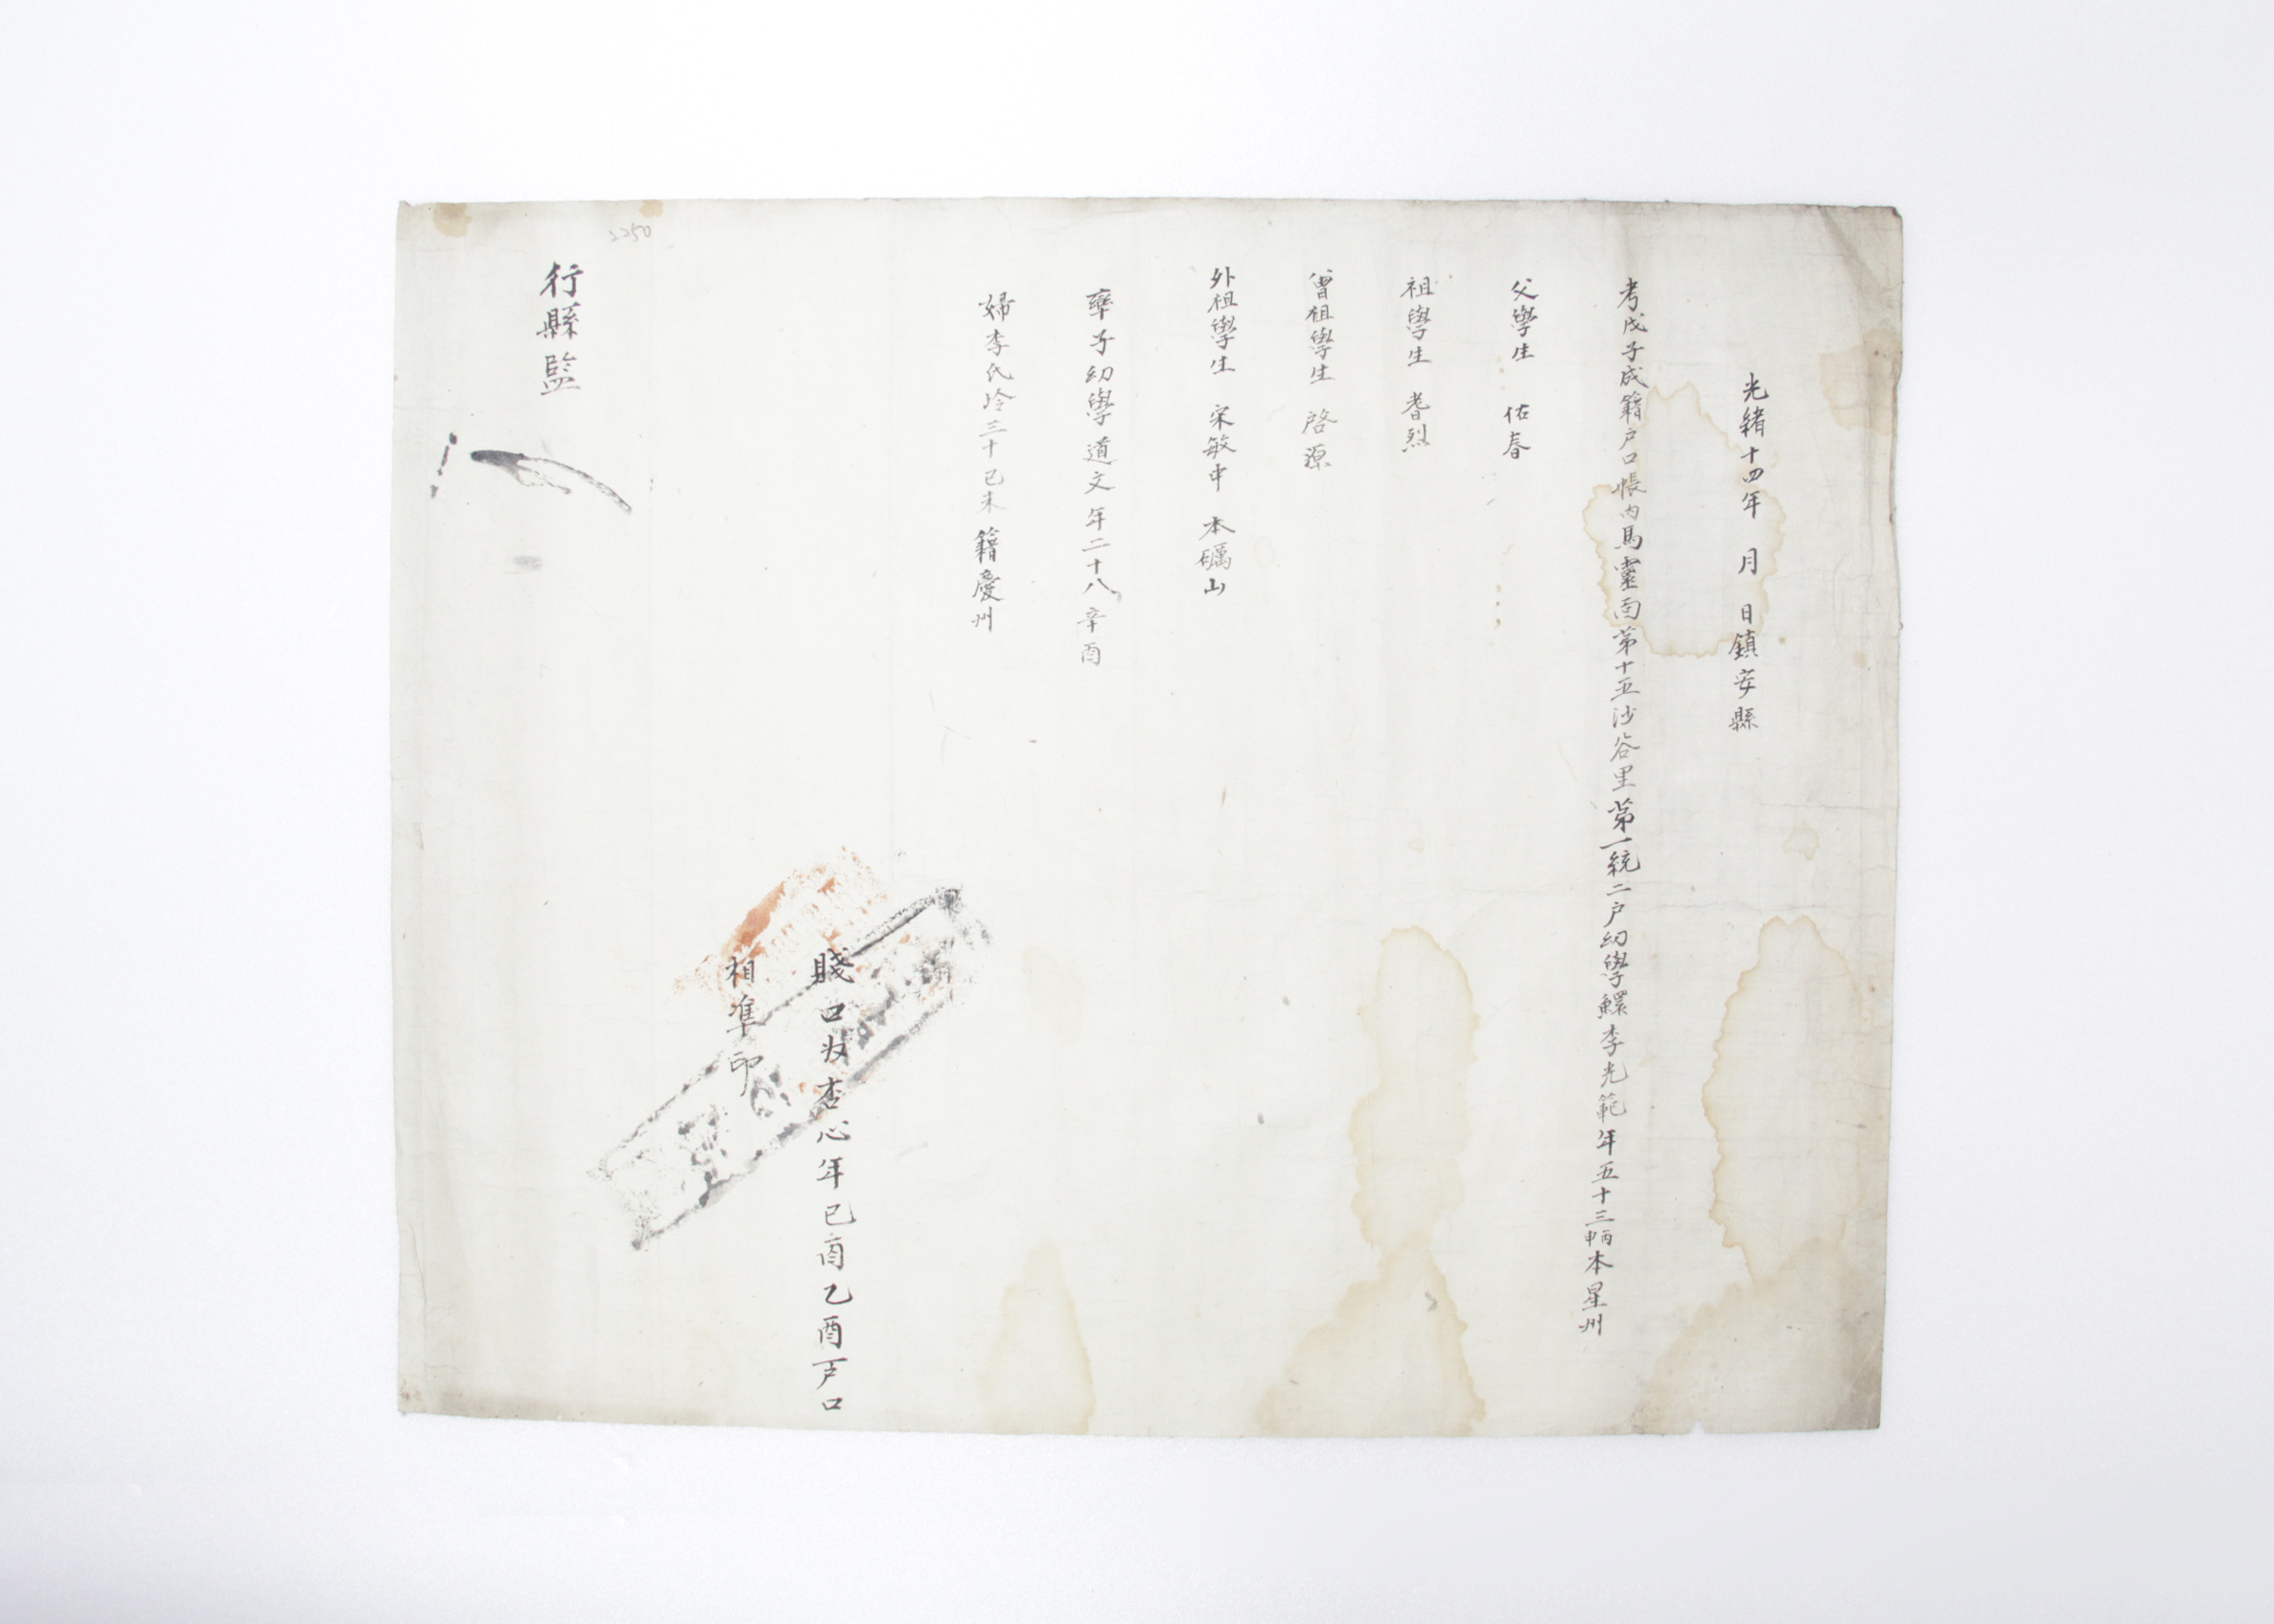 光緖十四年 月 日鎭安縣
考戊子成籍戶口帳內馬靈面第十五沙谷里第一統二戶幼學鰥李光範年五十三丙申本星州
父學生 佑春
祖學生 耆烈
曾祖學生 啓源
外祖學生 宋敏中 本礪山
率子幼學道文年二十八辛酉
婦李氏齡三十己未籍慶州
賤口奴杏心年己酉乙酉戶口
相準印
行縣監
2250